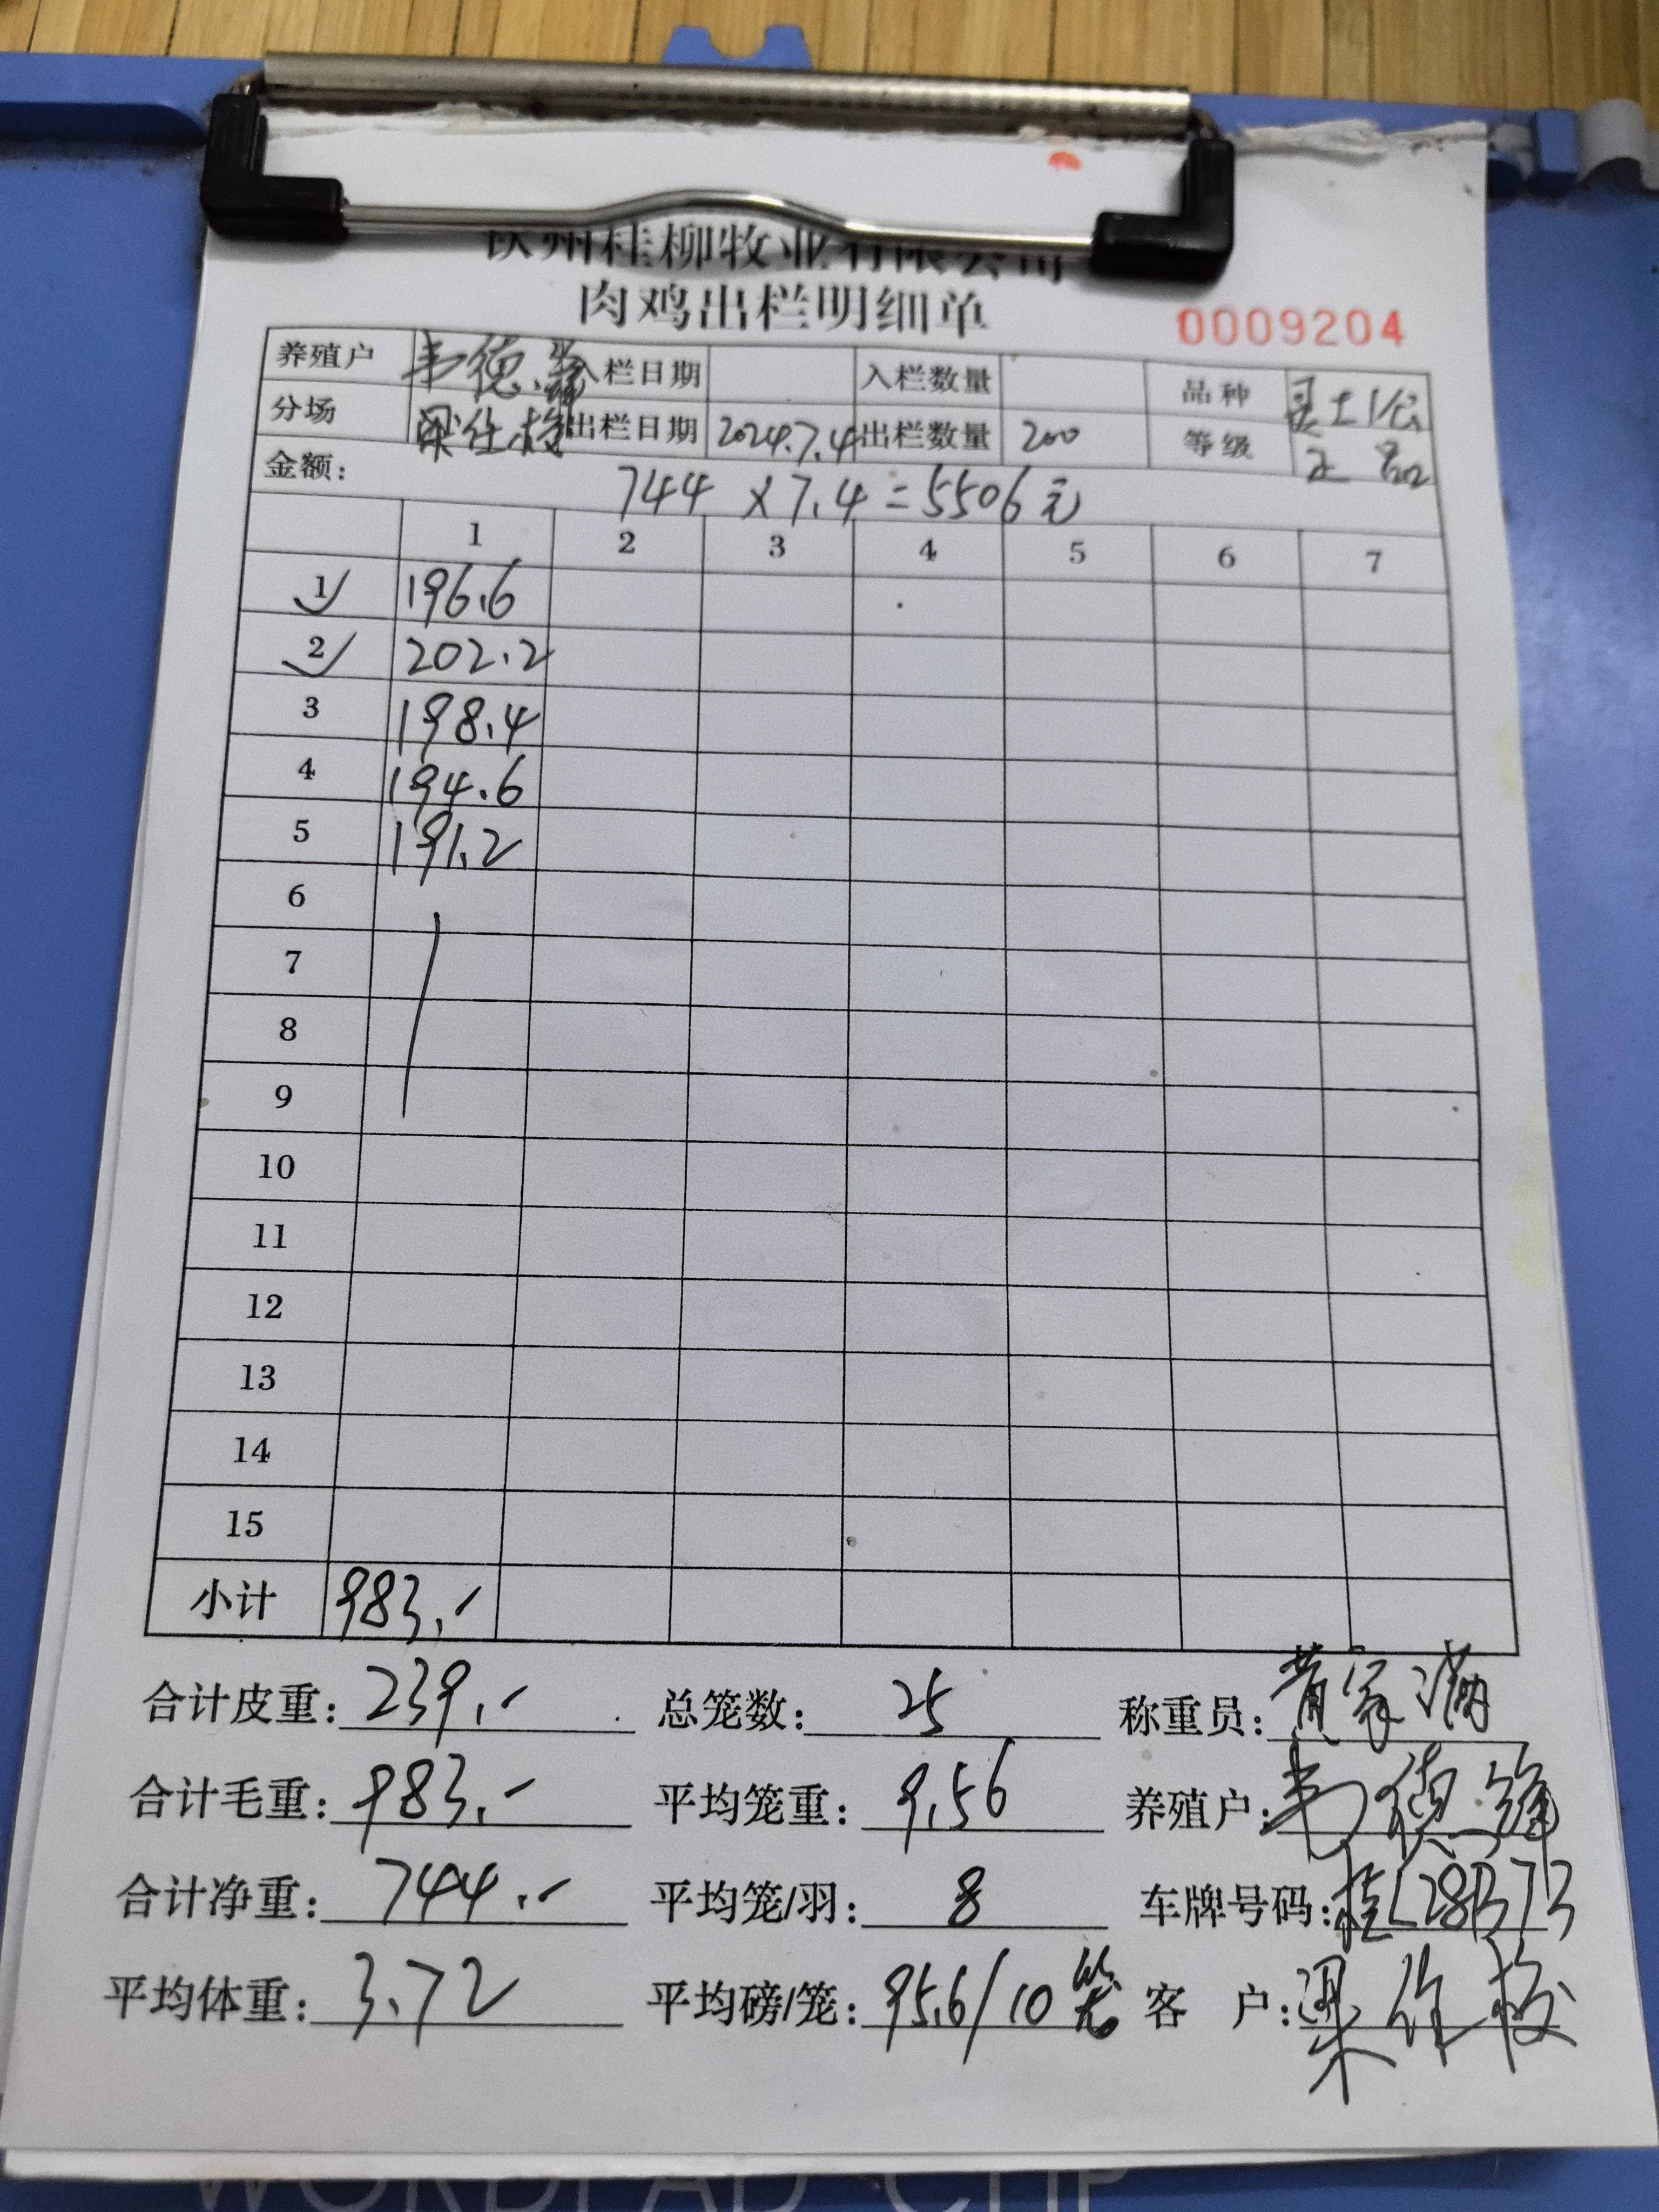 钦州桂柳牧业有限公司
肉鸡出栏明细单
0009204
养殖户 韦德 入栏日期 入栏数量 品种 灵土1公
分场 梁仕 出栏日期 2024.7.4 出栏数量 200 等级 正品
金额: 744 x 7.4 = 5506元
1 2 3 4 5 6 7
1 196.6
2 202.2
3 198.4
4 194.6
5 191.2
6
7
8
9
10
11
12
13
14
15
小计 983.-
合计皮重: 239.- 总笼数: 25 称重员: 黄家满
合计毛重: 983.- 平均笼重: 9.56 养殖户: 韦德
合计净重: 744.- 平均笼/羽: 8 车牌号码: 桂L28B73
平均体重: 3.72 平均磅/笼: 95.6/10笼 客 户: 梁
WORDPAD CLIP